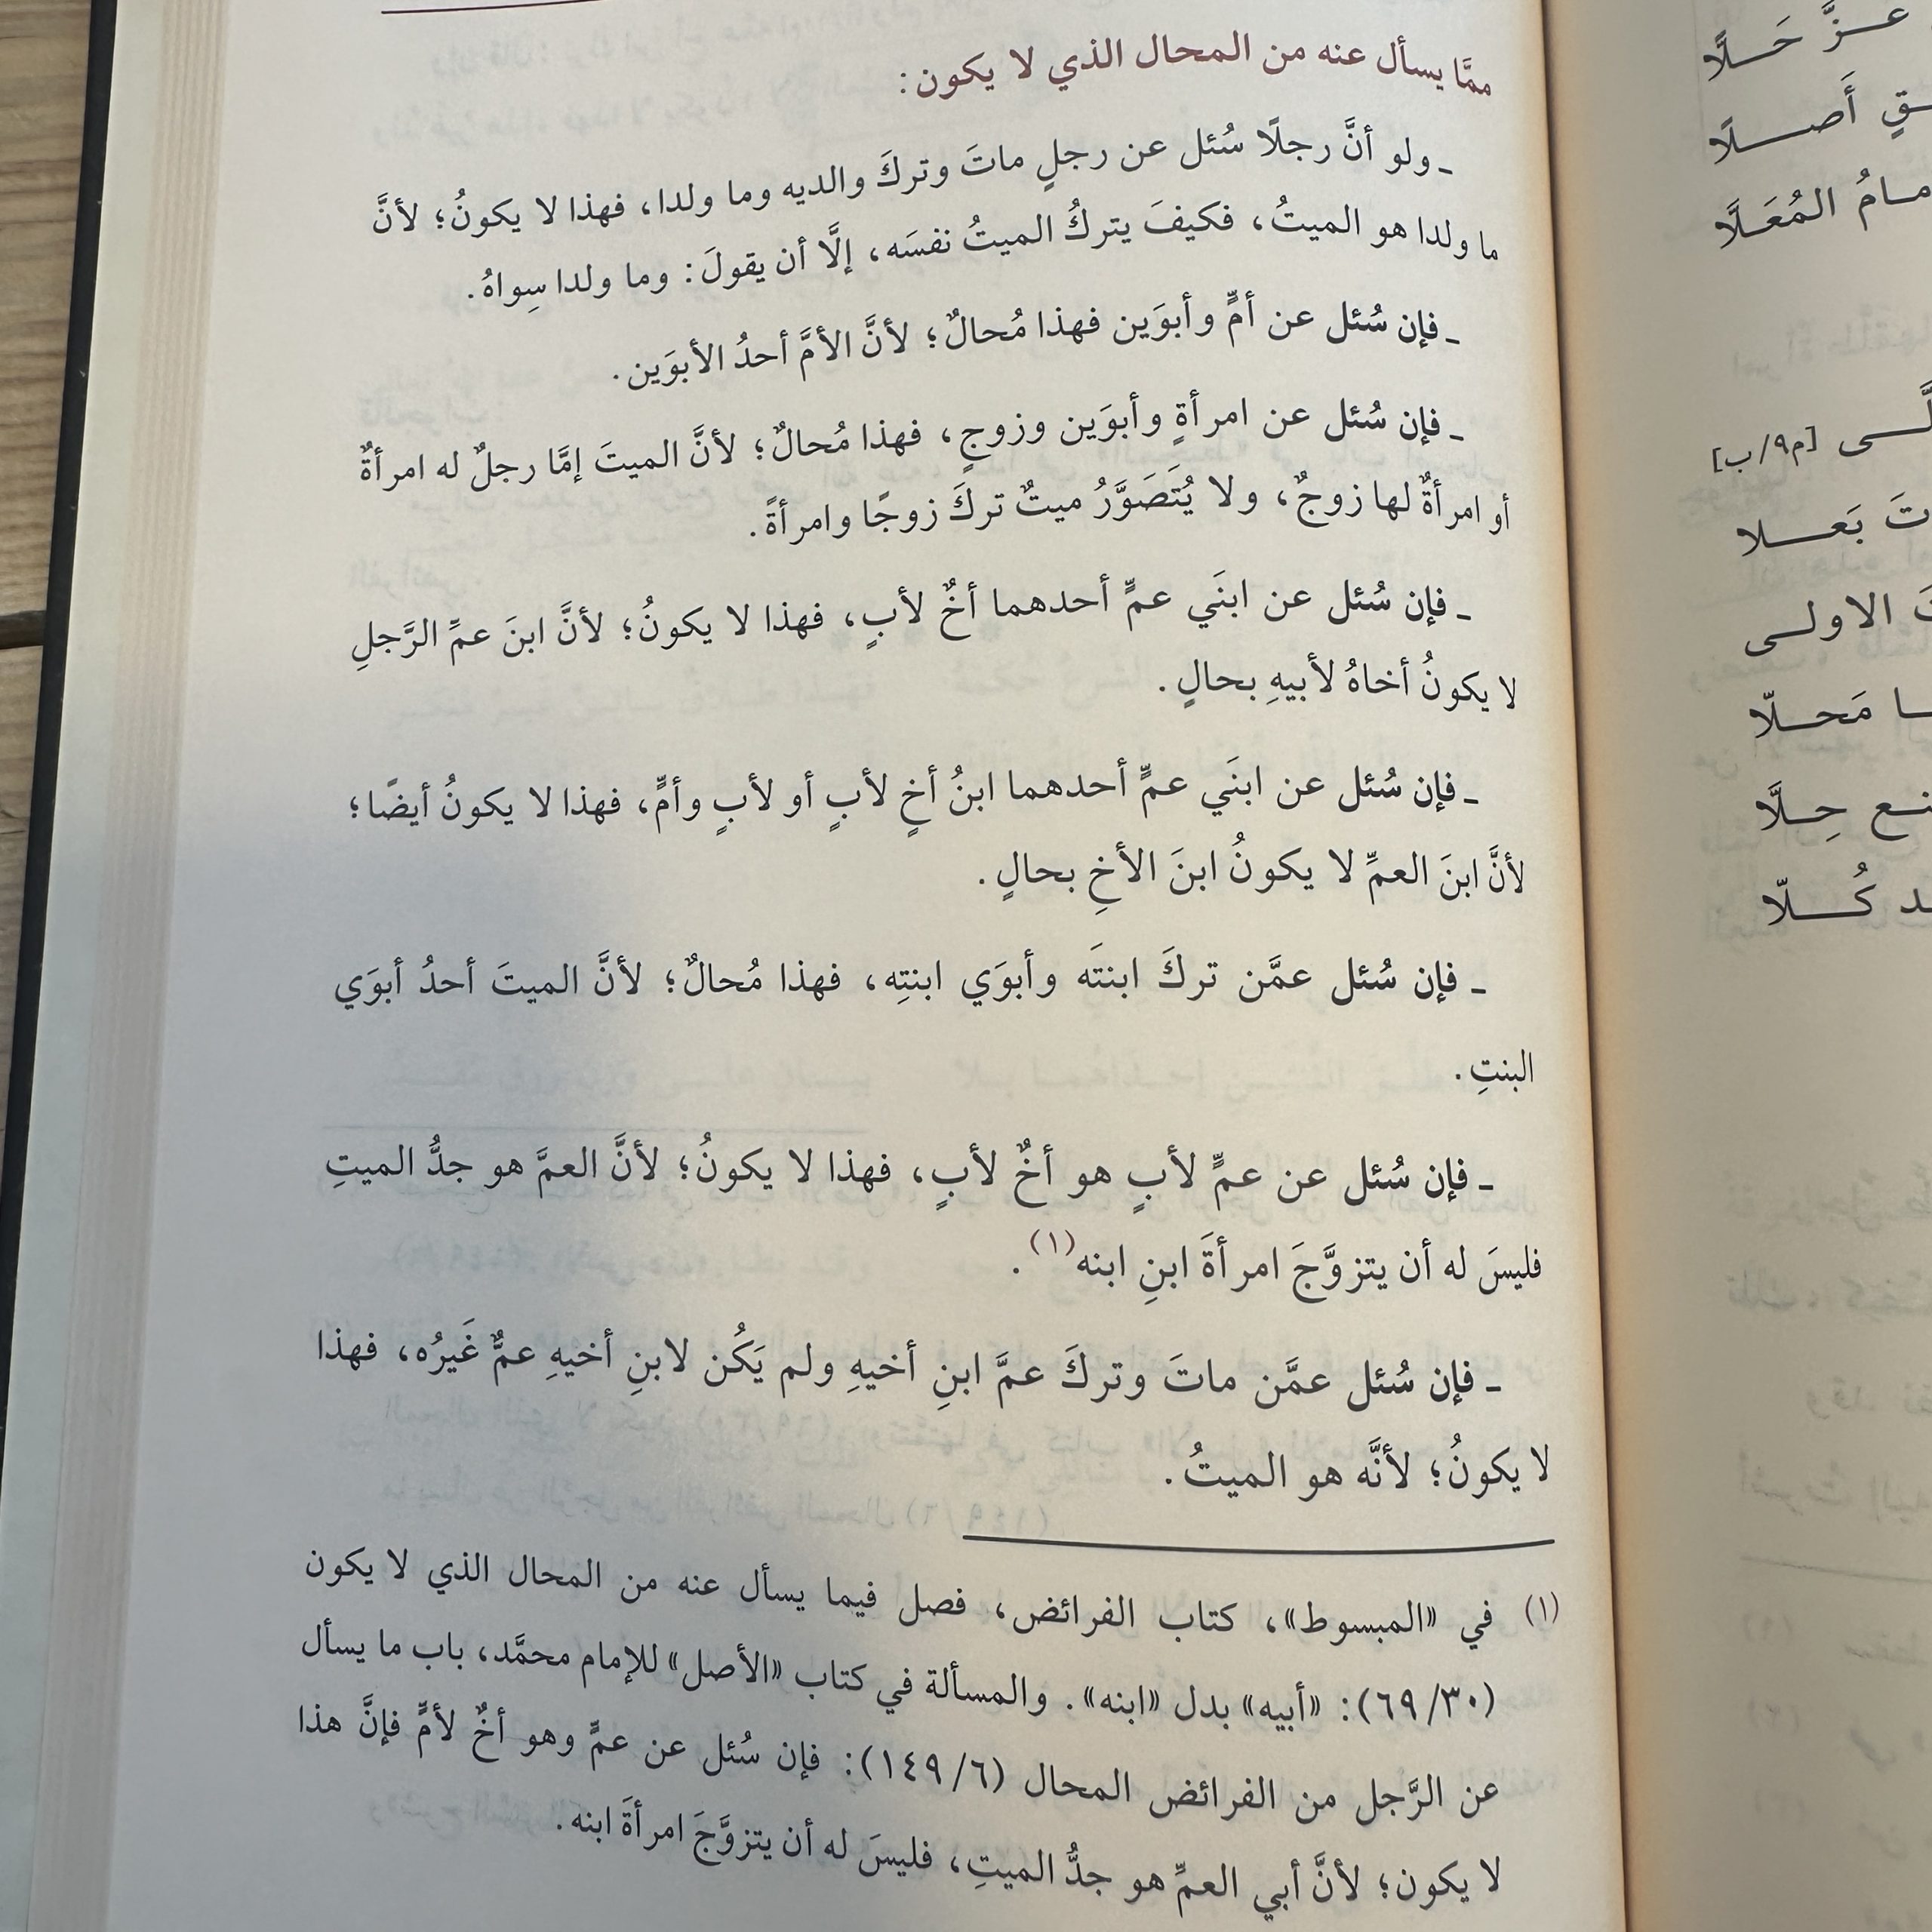 ممَّا يسأل عنه من المحال الذي لا يكون:
ـ ولو أنَّ رجلًا سُئل عن رجلٍ ماتَ وتركَ والديه وما ولدا، فهذا لا يكونُ؛ لأنَّ
ما ولدا هو الميتُ، فكيفَ يتركُ الميتُ نفسَه، إلَّا أن يقولَ: وما ولدا سِواهُ.
ـ فإن سُئل عن أمٍّ وأبوَين فهذا مُحالٌ؛ لأنَّ الأمَّ أحدُ الأبوَين.
ـ فإن سُئل عن امرأةٍ وأبوَين وزوجٍ، فهذا مُحالٌ؛ لأنَّ الميتَ إمَّا رجلٌ له امرأةٌ
أو امرأةٌ لها زوجٌ، ولا يُتَصَوَّرُ ميتٌ تركَ زوجًا وامرأةً.
ـ فإن سُئل عن ابنَي عمٍّ أحدهما أخٌ لأبٍ، فهذا لا يكونُ؛ لأنَّ ابنَ عمِّ الرَّجلِ
لا يكونُ أخاهُ لأبيهِ بحالٍ.
ـ فإن سُئل عن ابنَي عمٍّ أحدهما ابنُ أخٍ لأبٍ أو لأبٍ وأمٍّ، فهذا لا يكونُ أيضًا؛
لأنَّ ابنَ العمِّ لا يكونُ ابنَ الأخِ بحالٍ.
ـ فإن سُئل عمَّن تركَ ابنتَه وأبوَي ابنتِه، فهذا مُحالٌ؛ لأنَّ الميتَ أحدُ أبوَي
البنتِ.
ـ فإن سُئل عن عمٍّ لأبٍ هو أخٌ لأبٍ، فهذا لا يكونُ؛ لأنَّ العمَّ هو جدُّ الميتِ
فليسَ له أن يتزوَّجَ امرأةَ ابنِ ابنه(١).
ـ فإن سُئل عمَّن ماتَ وتركَ عمَّ ابنِ أخيهِ ولم يَكُن لابنِ أخيهِ عمٌّ غَيرُه، فهذا
لا يكونُ؛ لأنَّه هو الميتُ.
(١) في «المبسوط»، كتاب الفرائض، فصل فيما يسأل عنه من المحال الذي لا يكون
(٦٩/٣٠): «أبيه» بدل «ابنه». والمسألة في كتاب «الأصل» للإمام محمَّد، باب ما يسأل
عن الرَّجل من الفرائض المحال (١٤٩/٦): فإن سُئل عن عمٍّ وهو أخٌ لأمٍّ فإنَّ هذا
لا يكون؛ لأنَّ أبي العمِّ هو جدُّ الميتِ، فليسَ له أن يتزوَّجَ امرأةَ ابنه.
عـزَّ حَـلَّا
أَصـلًا
المُعَـلَّا
[م٩/ب]
بَعـلا
الاولـى
مَحـلّا
حِـلَّا
كُـلّا